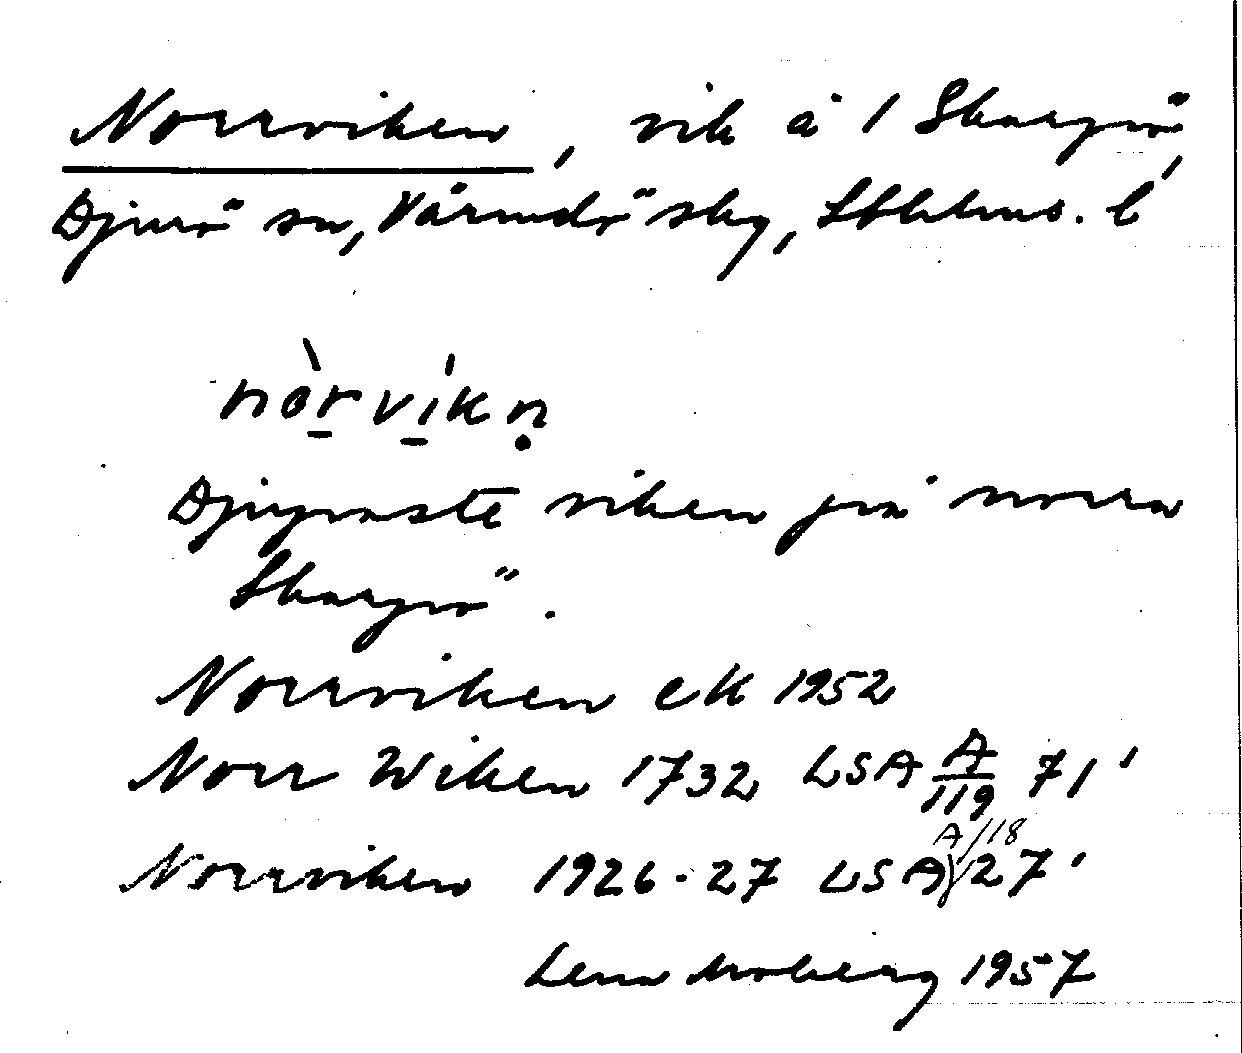 Norrviken, vik å 1 Skarpö,
Djurö sn, Värmdö skg, Sthlms. l
nòrvíkṇ
Djupaste viken på norra
Skarpö.
Norrviken ek 1952
Norr Wiken 1732 LSA A/119 71'
Norrviken 1926-27 LSA A/118 27'
Lena Moberg 1957